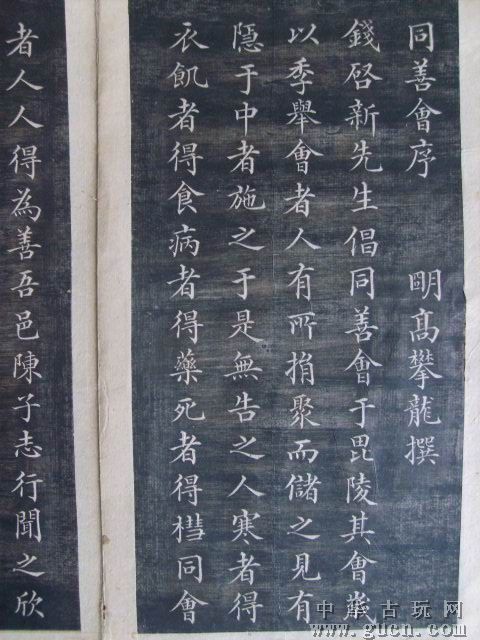 同善會序　　明髙攀龍撰
錢啓新先生倡同善會于毘陵其會嵗
以季舉會者人有所捐聚而儲之見有
隱于中者施之于是無告之人寒者得
衣飢者得食病者得藥死者得槥同會
者人人得為善吾邑陳子志行聞之欣
中华古玩网
www.gucn.com